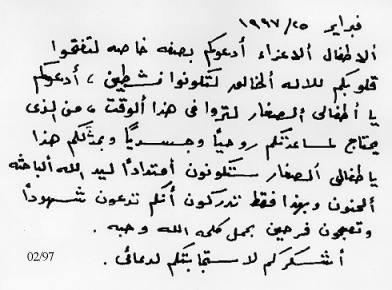 فبراير ٢٥/ ١٩٩٧
ألاطفال ألاعزاء أدعوكم بصفه خاصه لتفتحوا
قلوبكم للاله الخالق لتكونوا نشطين، أدعوكم
يا أطفالى ألصغار لتروا فى هذا ألوقت، من الذى
يحتاج لمساعدتكم روحياً وجسدياً وبمثلكم هذا
يا طفالى ألصغار ستكونون أمتداداً ليد الله ألباحثه
ألحنون وبهذا فقط تدركون أنكم تدعون شهوداً
وتصبحون فرحين بحمل كلمه الله وحبه.
أشكركم لاستجابتكم لدعائى.
02/97